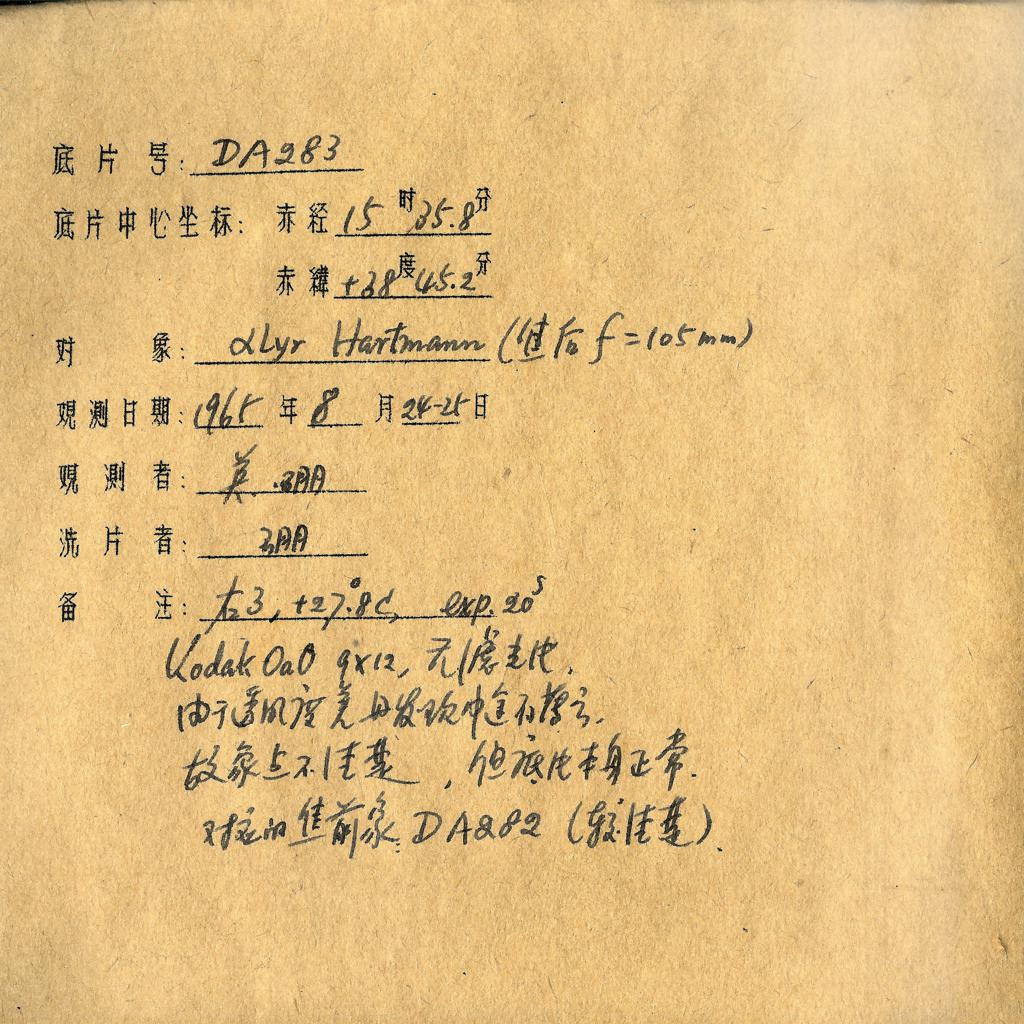 底片号: DA283
底片中心坐标: 赤经 15时35.8分
赤緯 +38度45.2分
对象: αLyr Hartmann (焦后 f=105mm)
观测日期: 1965年8月24-25日
观测者: 莫.
洗片者:
备注: 右3, +27°.8C, exp. 20s
Kodak OaO 9x12, 无滤光片.
由于
故象点不佳 , 但底片本身正常.
对应的焦前象: DA282 (较佳 ).